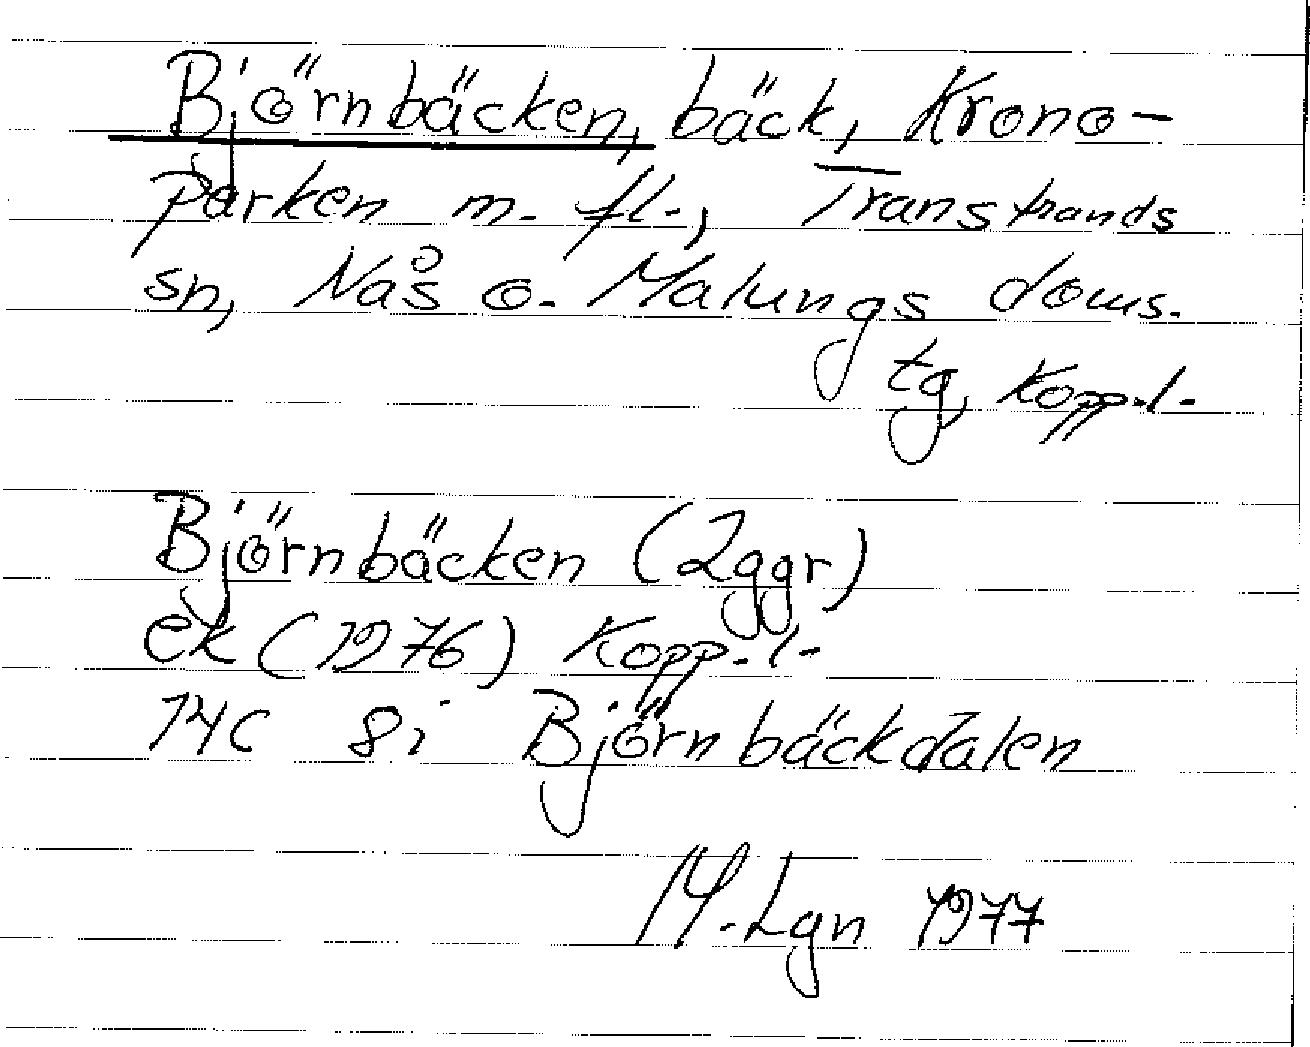 Björnbäcken, bäck, Krono-
parken m. fl., Transtrands
sn, Nås o. Malungs doms.
tg, Kopp.l.
Björnbäcken (2ggr)
ek (1976) Kopp.l.
14C 8i Björnbäckdalen
M. Lgn 1977